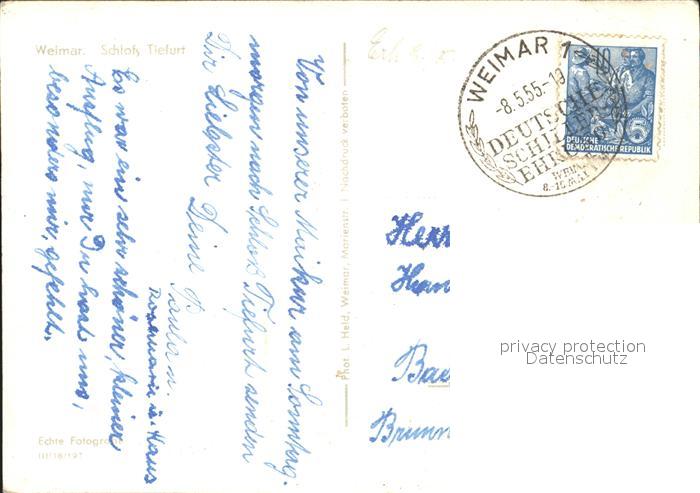 Weimar. Schloß Tiefurt
Von unserer Maikur am Sonntag-
morgen nach Schloß Tiefurt senden
Dir Liebster Deine
Rosemarie u. Hans
Es war ein sehr schöner, kleiner
Ausflug, nur Du hast uns,
besonders mir, gefehlt.
Echte Fotografie
III/18/197
Phot L. Held, Weimar, Marienstr. 1 Nachdruck verboten
WEIMAR 1
-8.5.55.-19
DEUTSCHE
SCHILLER
EHRUNG
WEIMAR
8.-15.MAI
DEUTSCHE
DEMOKRATISCHE REPUBLIK
5
Herr
Han
Bad
Brunn
privacy protection
Datenschutz